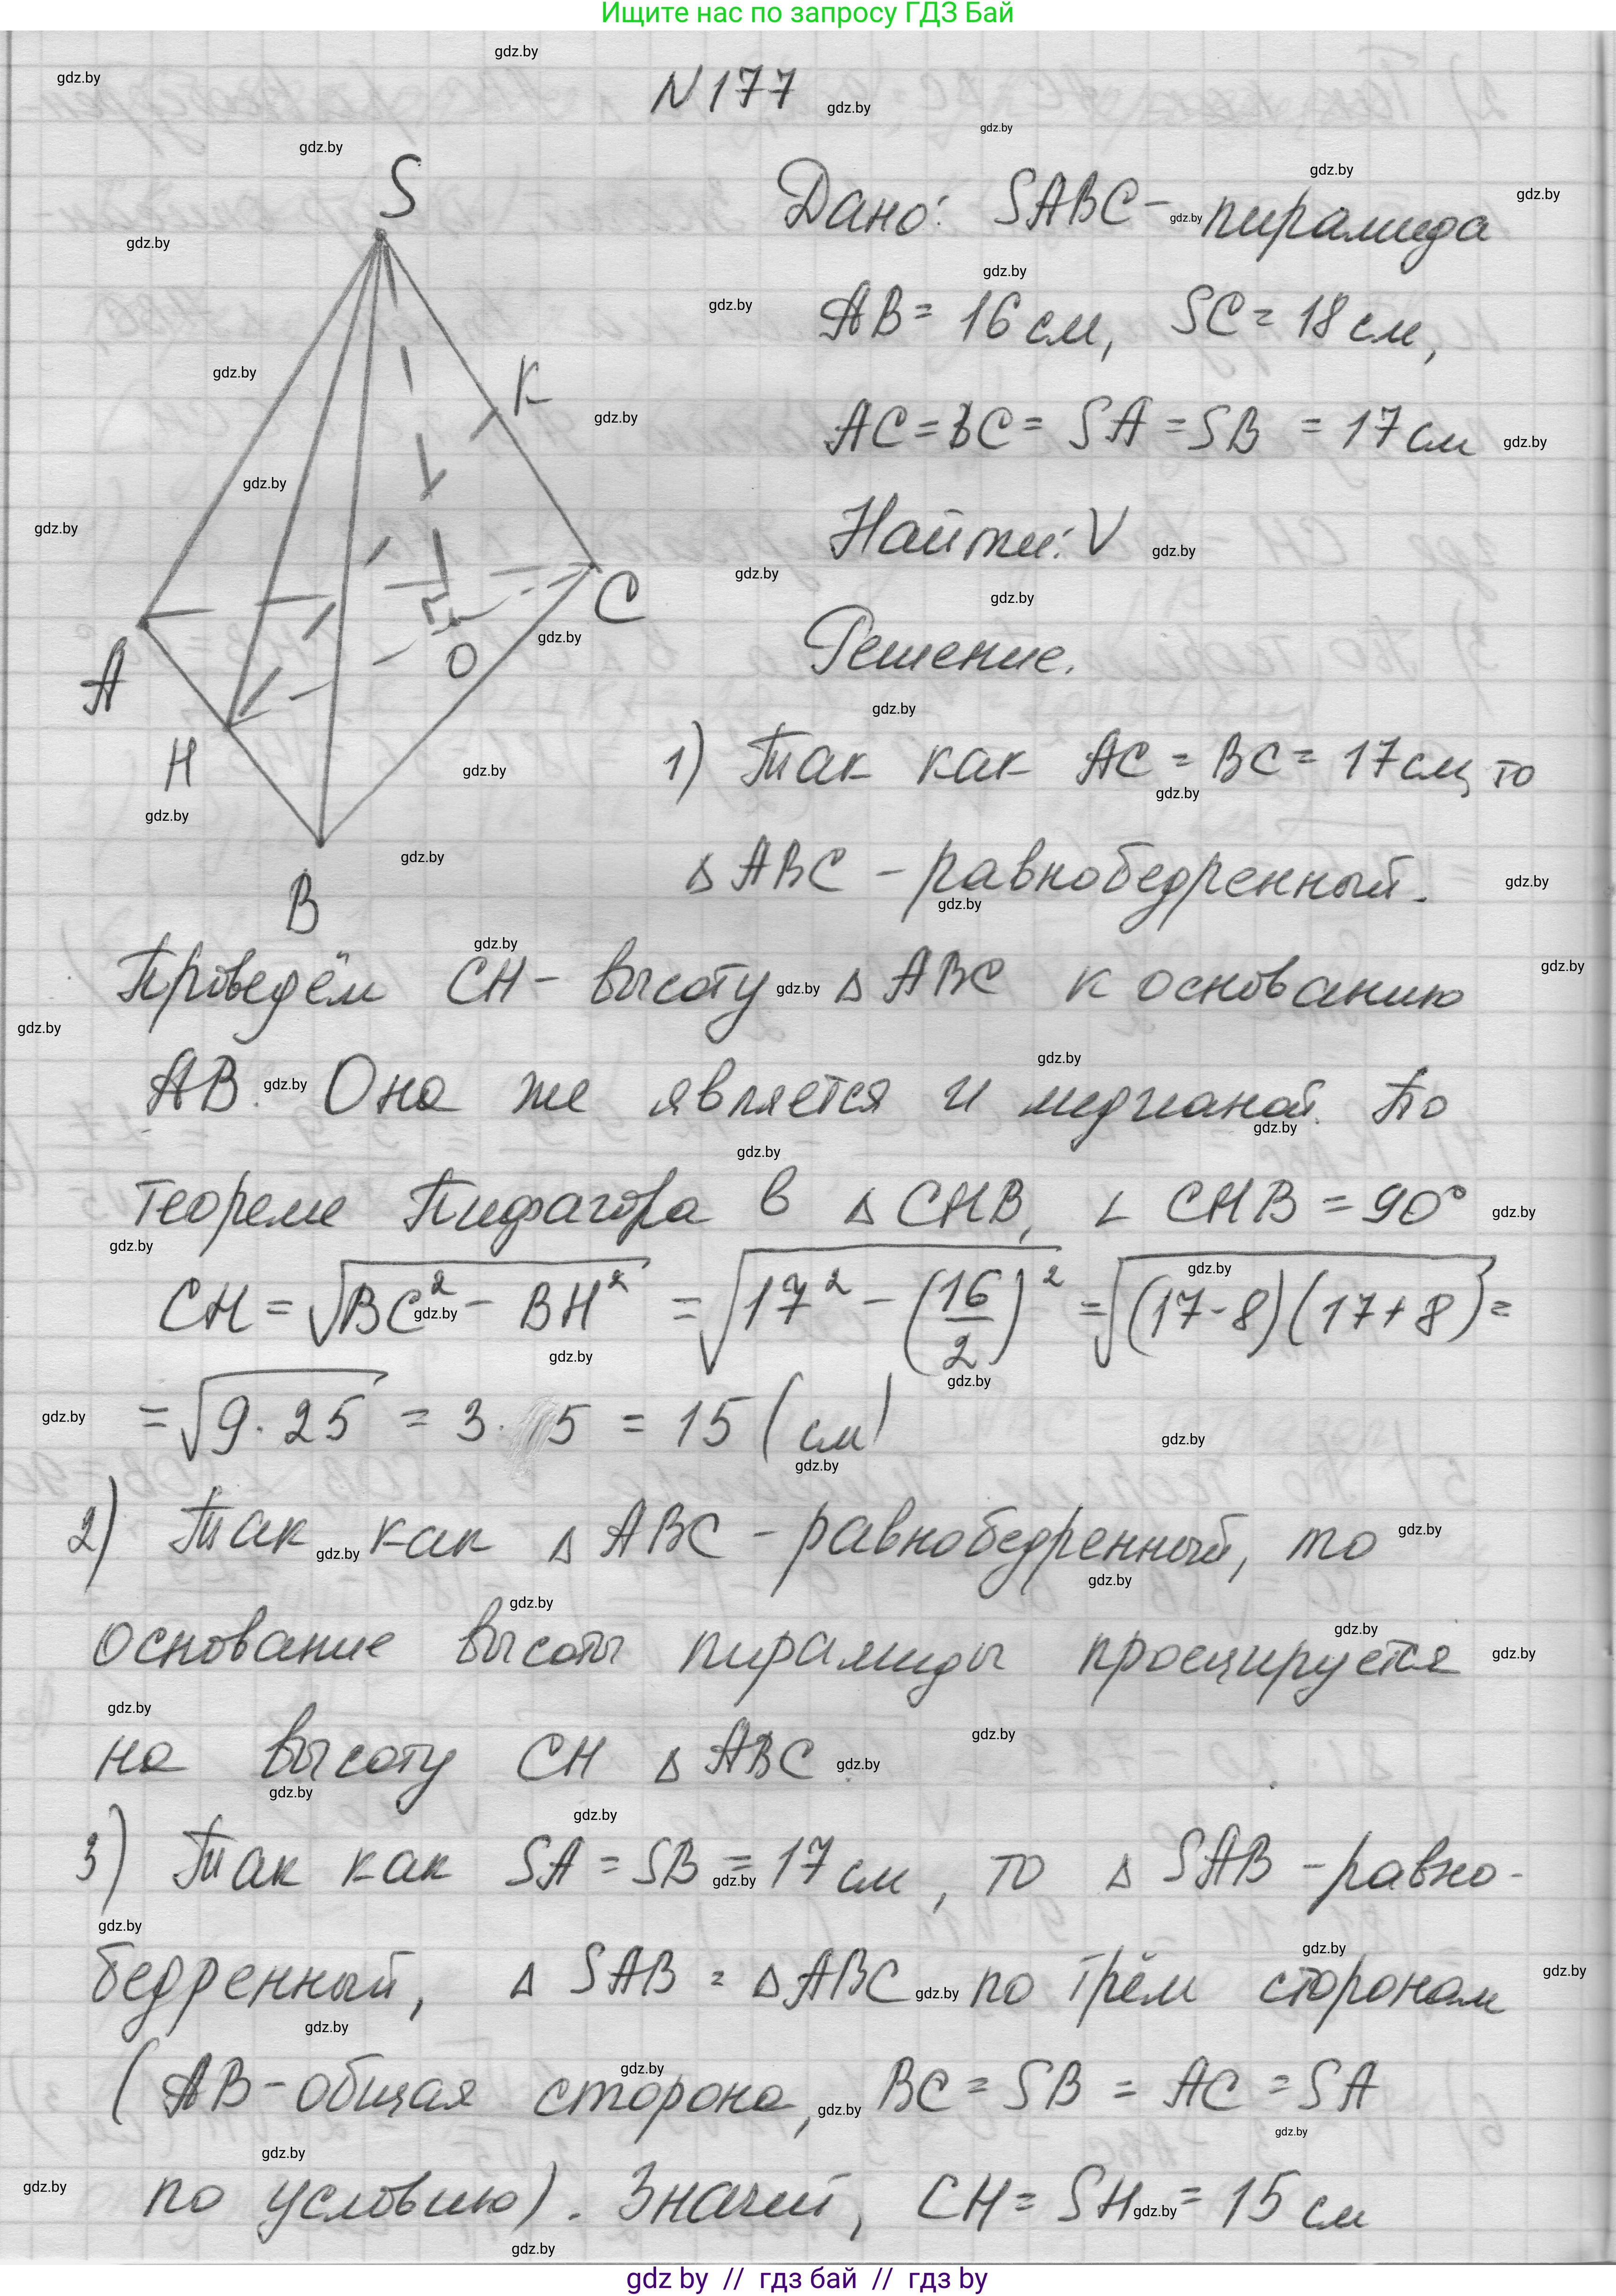 Ищите нас по запросу ГДЗ Бай
N 177
S
K
C
A
O
H
B
Дано: SABC - пирамида
AB = 16 см, SC = 18 см,
AC = BC = SA = SB = 17 см
Найти: V
Решение.
1) Так как AC = BC = 17 см, то
Δ ABC - равнобедренный.
Проведём CH - высоту Δ ABC к основанию
AB. Она же является и медианой. По
теореме Пифагора в Δ CHB, ∠ CHB = 90°
CH = √(BC² - BH²) = √(17² - (16/2)²) = √((17-8)(17+8)) =
= √(9 · 25) = 3 · 5 = 15 (см)
2) Так как Δ ABC - равнобедренный, то
основание высоты пирамиды проецируется
на высоту CH Δ ABC.
3) Так как SA = SB = 17 см, то Δ SAB - равно-
бедренный, Δ SAB = Δ ABC по трём сторонам
(AB - общая сторона, BC = SB = AC = SA
по условию). Значит, CH = SH = 15 см
gdz by // гдз бай // гдз by